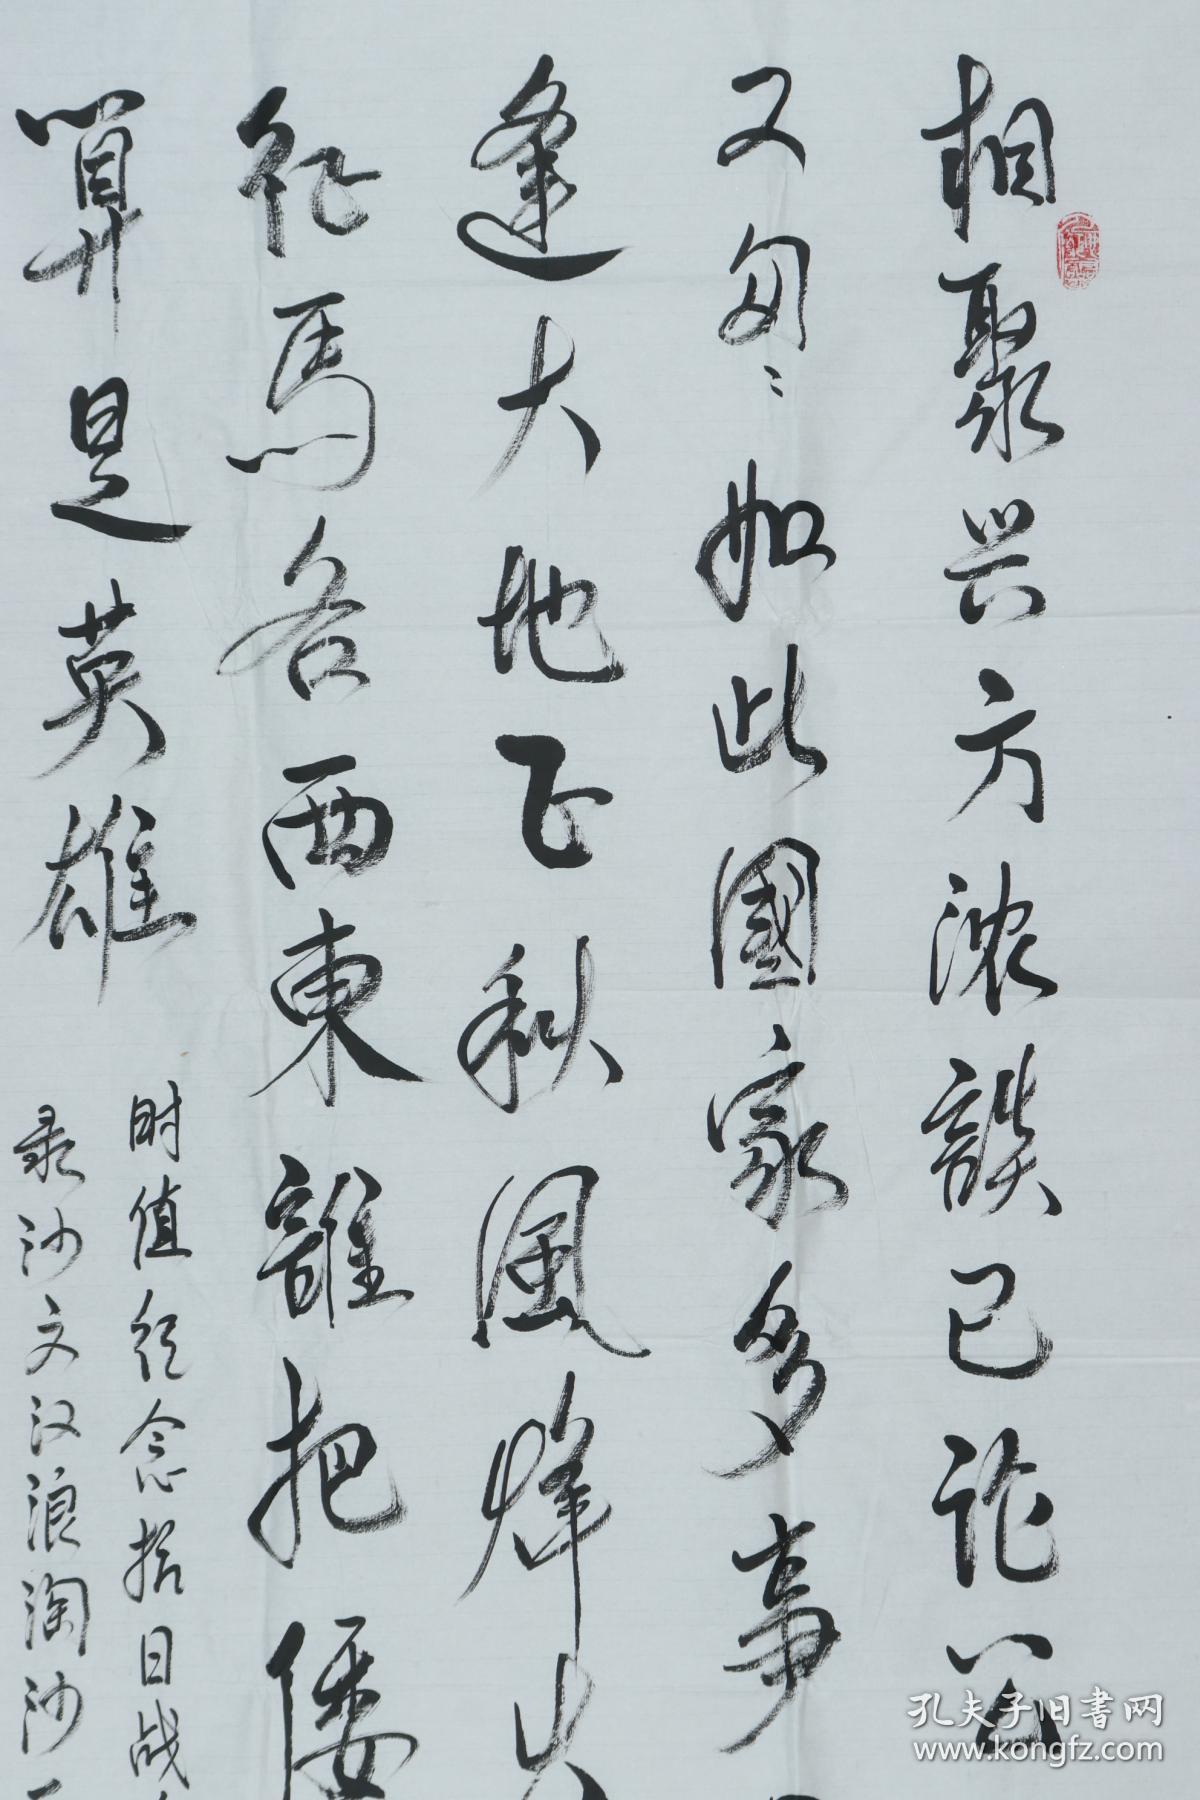 相聚兴方浓談已论公
又匆々如此國家多事
逢大地正秋風烽火
征馬各西東誰把倭
算是英雄
时值纪念抗日战
录沙文汉浪淘沙
孔夫子旧书网
www.kongfz.com